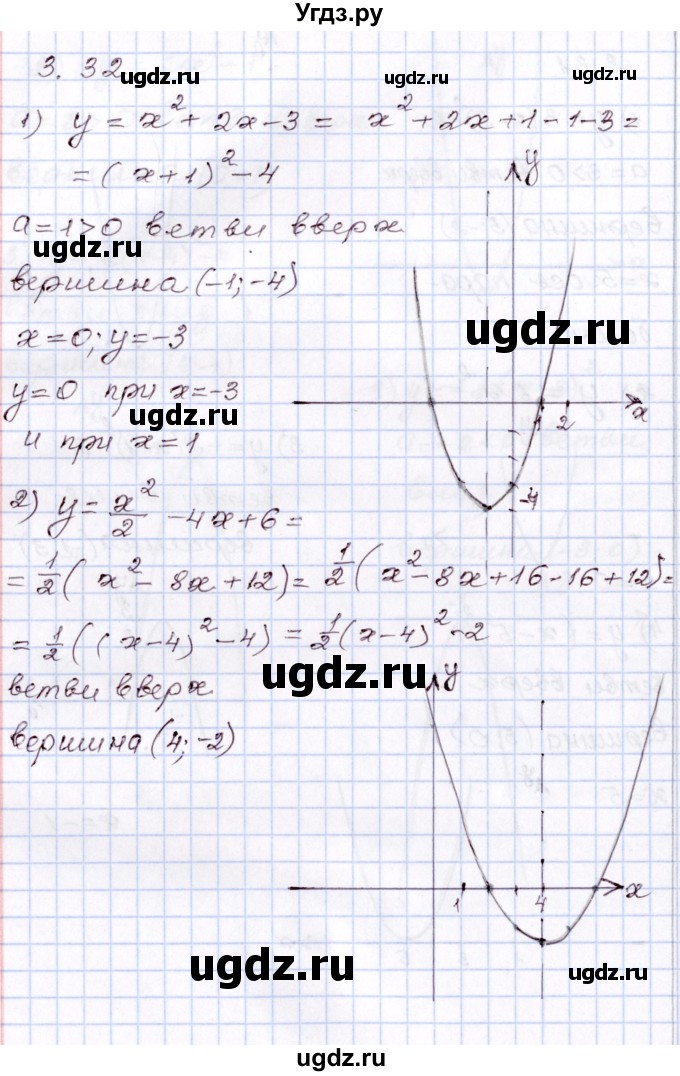 Угдз.ру
3. 32
ugdz.ru
ugdz.ru
ugdz.ru
1) y = x² + 2x - 3 = x² + 2x + 1 - 1 - 3 =
= (x+1)² - 4
y
a = 1 > 0 ветви вверх
ugdz.ru
вершина (-1; -4)
x = 0; y = -3
ugdz.ru
y = 0 при x = -3
ugdz.ru
и при x = 1
1 2 x
-4
2) y = x²/2 - 4x + 6 =
ugdz.ru
ugdz.ru
= 1/2 (x² - 8x + 12) = 1/2 (x² - 8x + 16 - 16 + 12) =
= 1/2 ((x-4)² - 4) = 1/2 (x-4)² - 2
ugdz.ru
ветви вверх
y
вершина (4; -2)
1 4 x
ugdz.ru
ugdz.ru
ugdz.ru